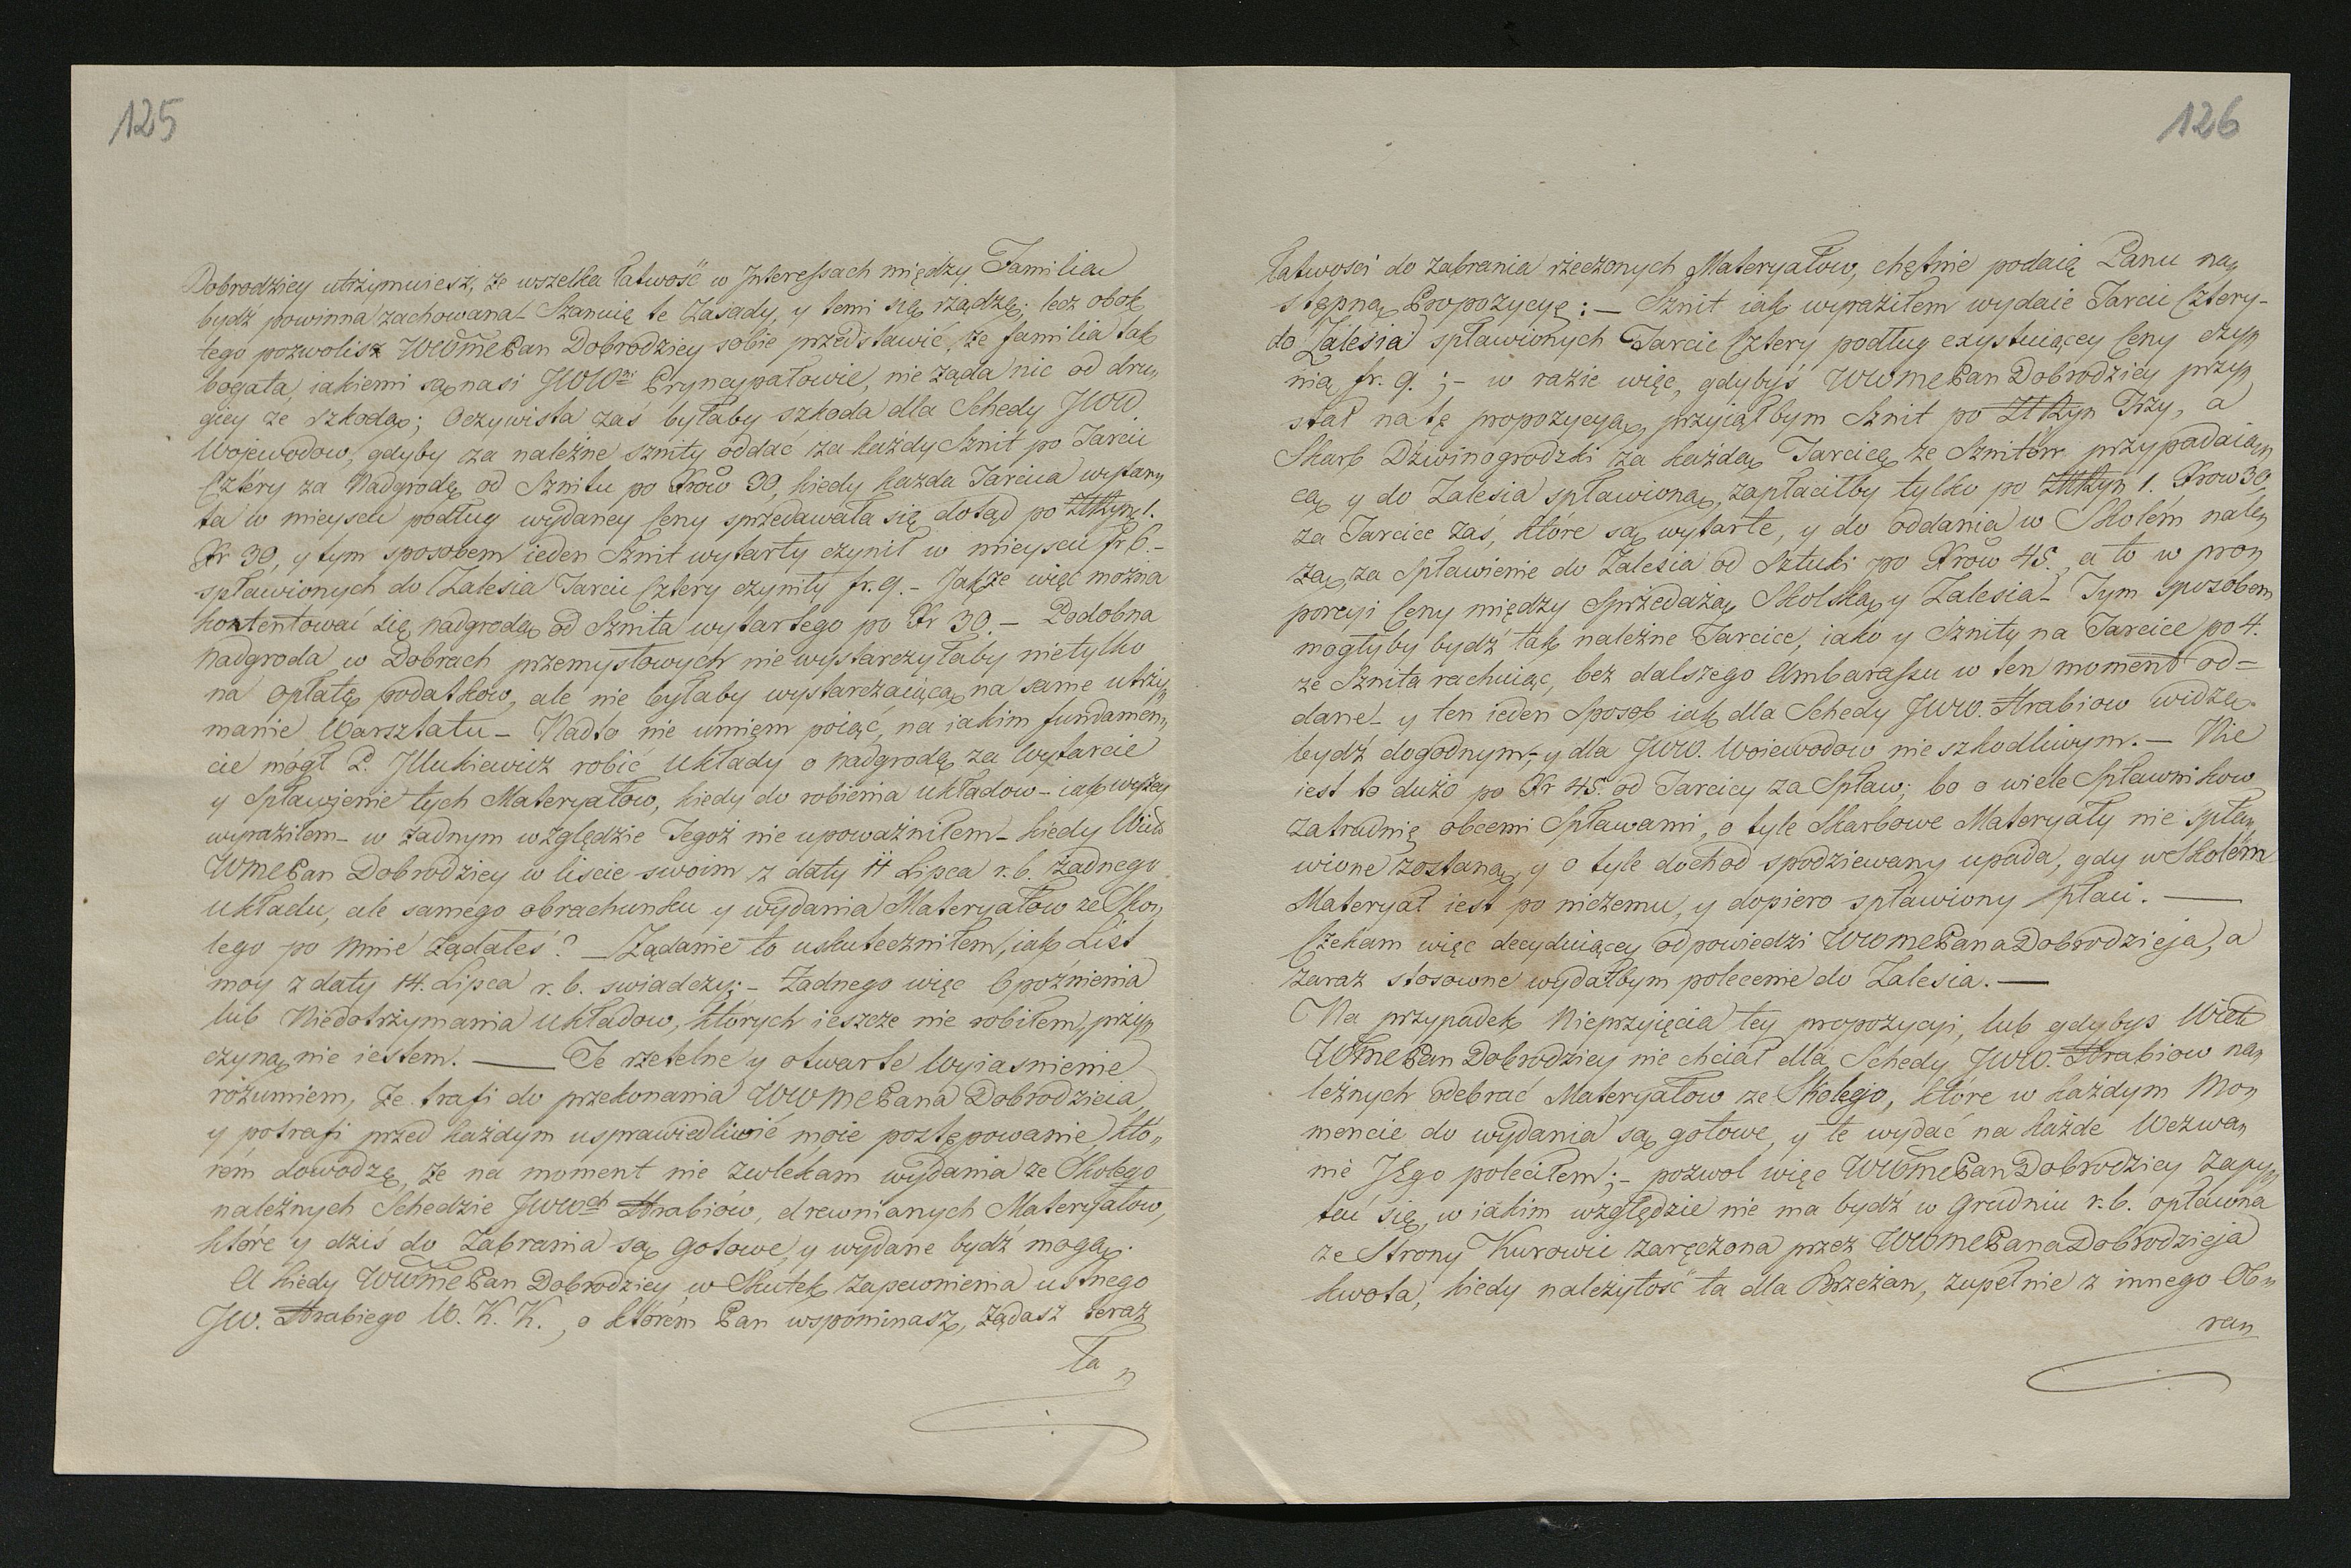 125
Dobrodziey utrzymuiesz, że wszelka łatwość w Interessach między Familią
bydź powinna zachowana. Szanuię te Zasady, y temi się rządzę; lecz obok
tego pozwolisz WWMePan Dobrodziey sobie przedstawić, że familia tak
bogata, iakiemi są nasi JWW Pryncypałowie, nie żąda nic od dru„
giey ze szkodą; Oczywista zaś byłaby szkoda dla Schedy JWW.
Wojewodow, gdyby za należne sznity oddać za każdy Sznit po Tarcic
Cztéry za Nadgrodę od Sznitu po Xrów 30, kiedy każda Tarcica wytar„
ta w mieyscu podług wydaney Ceny sprzedawała się dotąd po ZłRyn 1.
Xr 30, y tym sposobem ieden Sznit wytarty czynił w mieyscu fr 6.–
spławionych do Zalesia Tarcic Cztery czyniły fr. 9.– Jakże więc można
kontentować się nadgrodą od Sznita wytartego po Xr 30.– Podobna
Nadgroda w Dobrach przemysłowych nie wystarczyłaby nietylko
na opłatę podatkow, ale nie byłaby wystarczaiącą na same utrzy„
manie Warsztatu– Nadto nie umiem poiąć, na iakim fundamen„
cie mógł P. Illukiewicz robić Układy o nadgrodę za Wytarcie
y Spławienie tych Materyałow, kiedy do robienia układow– iak wyżey
wyraziłem– w żadnym względzie Tegoż nie upoważniłem– kiedy Wiel
WMePan Dobrodziey w liscie swoim z daty 11 Lipca r. b. żadnego
układu, ale samego obrachunku y wydania Materyałow ze Sko„
lego po mnie żądałeś? – Żądanie to uskuteczniłem, iak List
moy z daty 14. Lipca r. b. swiadczy;– Żadnego więc Opoźnienia
lub Niedotrzymania Układow, których ieszcze nie robiłem, przy„
czyną nie iestem. — Te rzetelne y otwarte Wyiasnienie
rozumiem, że trafi do przekonania WWMePana Dobrodzieia,
y potrafi przed każdym usprawiedliwić moie postępowanie, któ„
rém dowodzę, że na moment nie zwlekam wydania ze Skolego
należnych Schedzie JWWch Hrabiów, drewnianych Materyałow,
które y dziś do Zabrania są gotowe, y wydane bydź mogą.
A kiedy WWMePan Dobrodziey w Skutek Zapewnienia ustnego
JW. Hrabiego W. K. K., o którém Pan wspominasz, żądasz teraz
Ła„
126
Łatwosci do zabrania rzeczonych Materyałow, chętnie podaię Panu na„
stępną Propozycyę: – Sznit iak wyraziłem wydaie Tarcic Cztery–
do Zalesia spławionych Tarcic Cztery podług exystuiącey Ceny czy„
nią fr. 9.;– w razie więc, gdybyś WWMePan Dobrodziey przy„
stał na tę propozycyą, przyiąłbym Sznit po ZłRyn Trzy, a
Skarb Dźwinogrodzki za każdą Tarcicę ze Sznitów przypadaią„
cą y do Zalesia spławioną, zapłaciłby tylko po ZłRyn 1. Xrow 30,
za Tarcice zaś, które są wytarte, y do oddania w Skolém nale„
żą, za Spławienie do Zalesia od Sztuki po Xrów 45., a to w pro„
porcyi Ceny między Sprzedażą Skolską y Zalesia. Tym sposobem
mogłyby bydź tak należne Tarcice, iako y Sznity na Tarcice po 4.
ze Sznita rachuiąc, bez dalszego Ambarassu w ten moment od=
dane– y ten ieden Sposob iak dla Schedy JWW. Hrabiow widzę
bydź dogodnym,– y dla JWW. Woiewodow nie szkodliwym.– Nie
iest to dużo po Xr 45. od Tarcicy za Spław; bo o wiele Spławnikow
zatrudnię obcemi Spławami, o tyle Skarbowe Materyały nie spła„
wione zostaną, y o tyle dochod spodziewany upada, gdy w Skolém
Materyał iest po niczemu, y dopiero spławiony płaci. —
Czekam więc decyduiącey odpowiedzi WWMePana Dobrodzieja, a
zaraz stosowne wydałbym polecenie do Zalesia. —
Na przypadek Nieprzyięcia tey propozycyi, lub gdybys Wiel
WMePan Dobrodziey nie chciał dla Schedy JWW. Hrabiow na„
leżnych odebrać Materyałow ze Skolego, które w każdym Mo„
mencie do wydania są gotowe, y te wydać na każde Wezwa„
nie JEgo poleciłem;– pozwol więc WWMePan Dobrodziey Zapy„
tać się, w iakim względzie nie ma bydź w Grudniu r. b. opłacona
ze Strony Kurowic zaręczona przez WWMePana Dobrodzieja
kwota, kiedy należytość ta dla Brzeżan, zupełnie z innego Ob„
ra„